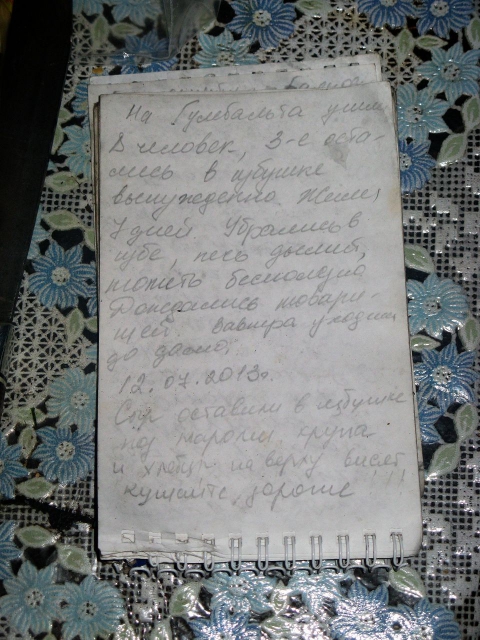 На Гумбольта ушли
8 человек, 3-е оста-
лись в избушке
вынужденно. Жили
7 дней Убрались в
избе, печь дымит,
топить бесполезно
Дождались товари-
щей. Завтра уходим
до дому.
12.07.2013г.
оставили в избушке
под крупа
и хлебцы на верху висят
кушайте, дорогие !!!